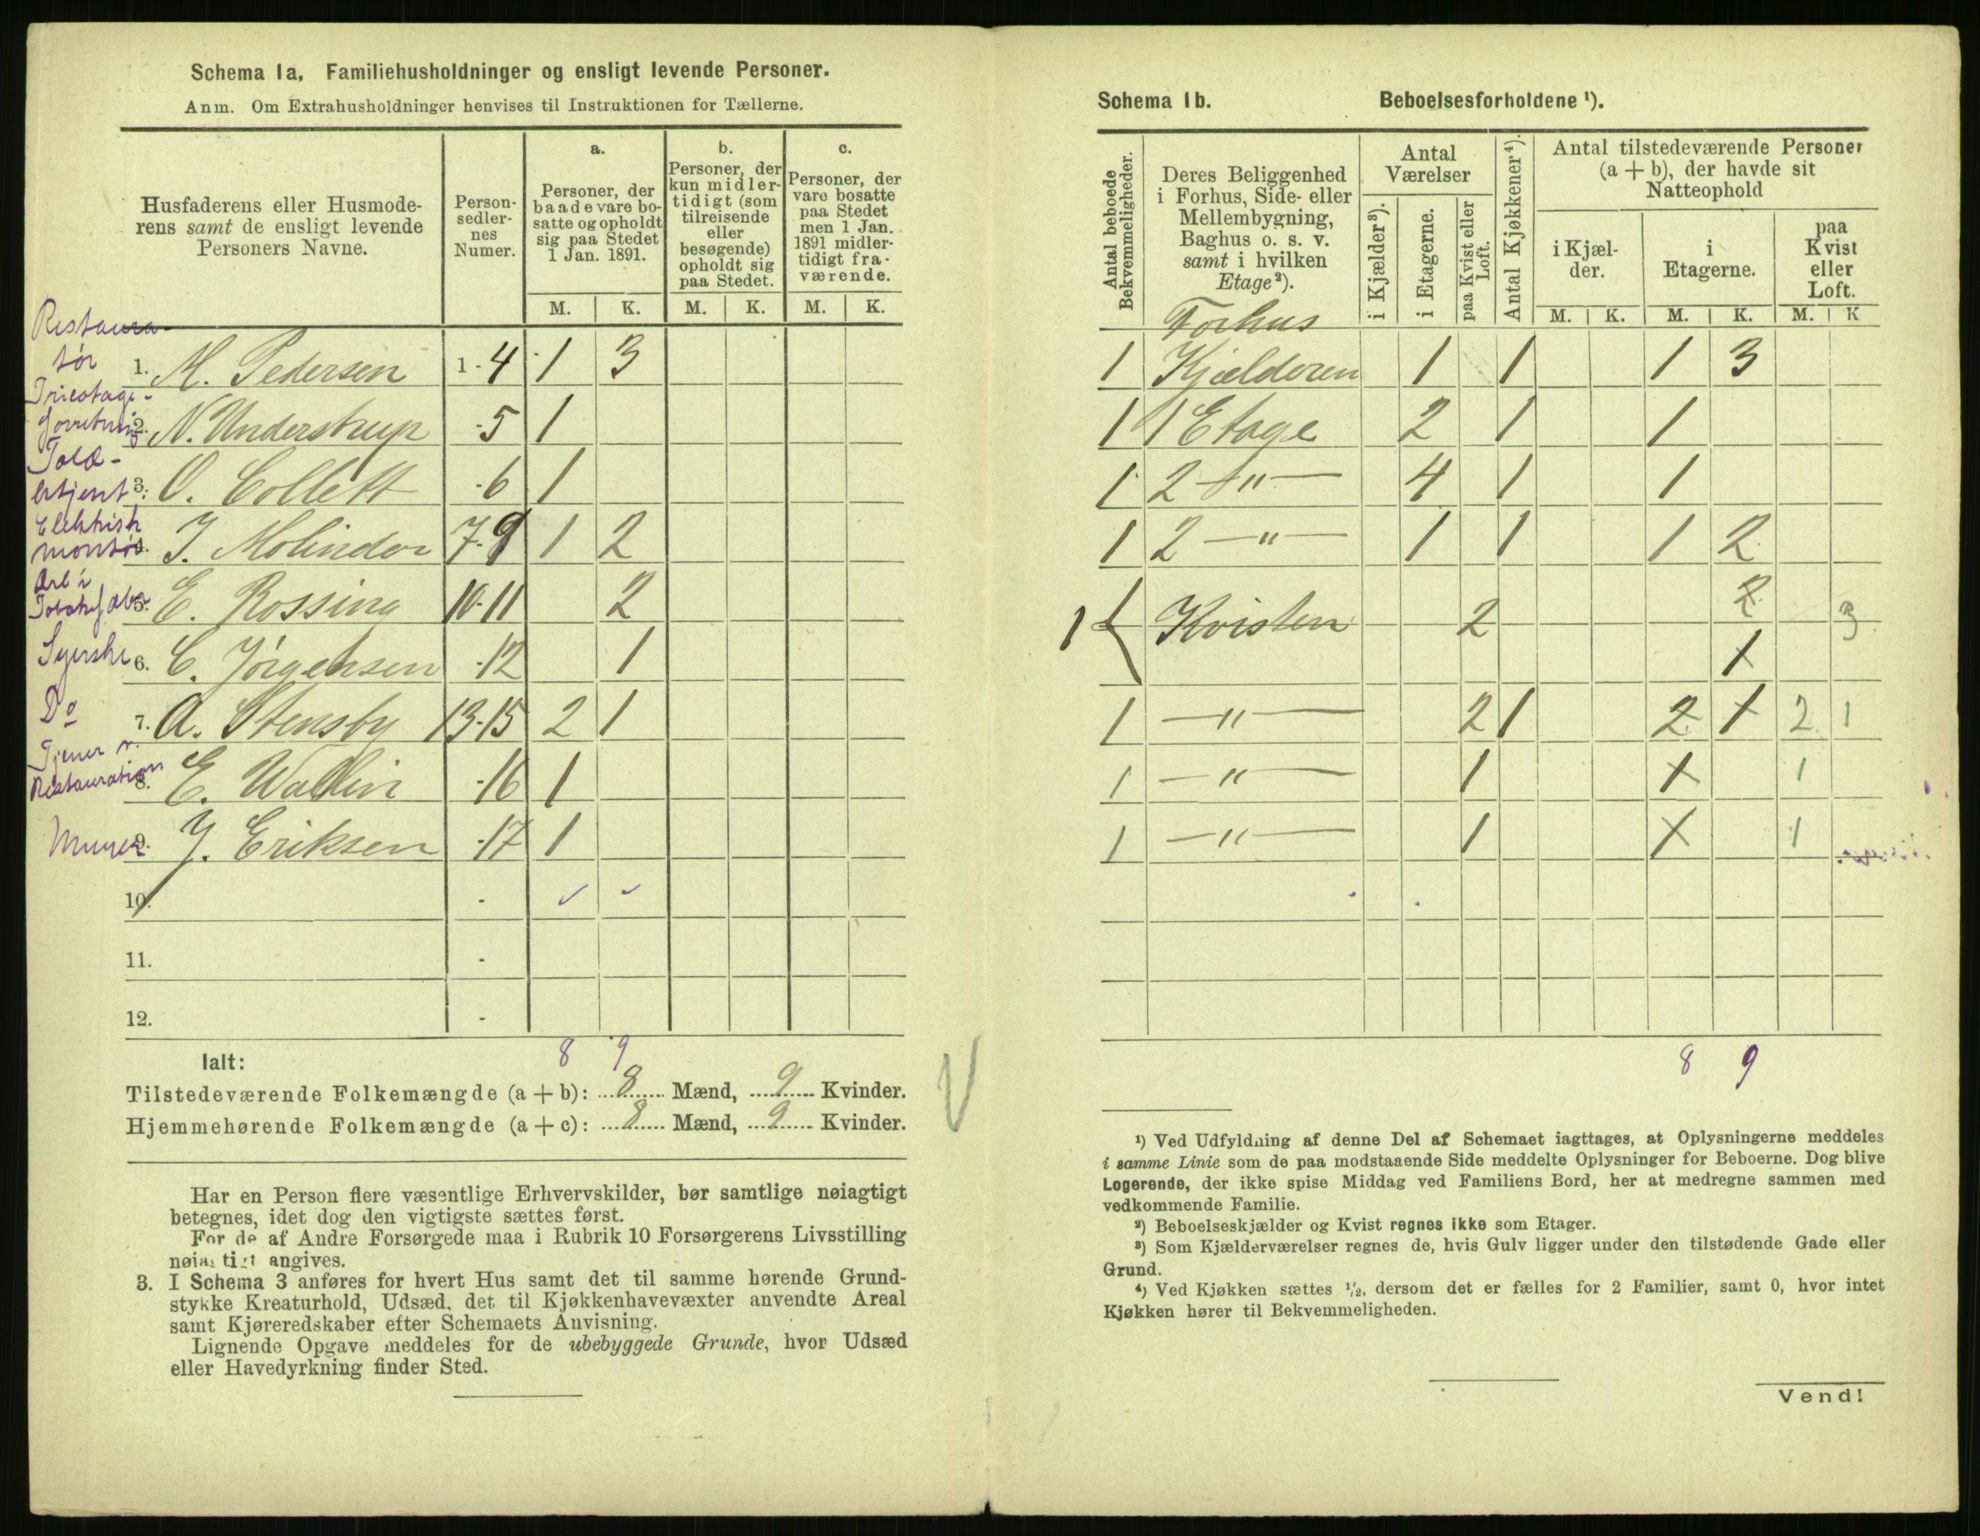 Schema 1a. Familiehusholdninger og ensligt levende Personer.
Anm. Om Extrahusholdninger henvises til Instruktionen for Tællerne.
Husfaderens eller Husmoderens samt de ensligt levende Personers Navne.
Person-sedlernes Numer.
a.
Personer, der baade vare bosatte og opholdt sig paa Stedet 1 Jan. 1891.
b.
Personer, der kun midlertidigt (som tilreisende eller besøgende) opholdt sig paa Stedet.
c.
Personer, der vare bosatte paa Stedet men 1 Jan. 1891 midlertidigt fraværende.
M. K. M. K. M. K.
Restauratør 1. M. Pedersen 1-4 1 3
Tricotageforretning 2. N. Understrup -5 1
Toldbetjent 3. O. Collett -6 1
Elektrisk montør 4. J. Molinder 7-9 1 2
Arb i Tobaksfabr 5. E. Rossing 10-11 2
Syerske 6. C. Jørgensen -12 1
Do 7. A. Stensby 13-15 2 1
Tjener v. Restauration 8. E. Wallin -16 1
Murer 9. J. Eriksen -17 1
10. -
11. -
12. -
8 9
Ialt:
Tilstedeværende Folkemængde (a + b): 8 Mænd, 9 Kvinder.
Hjemmehørende Folkemængde (a + c): 8 Mænd, 9 Kvinder.
Har en Person flere væsentlige Erhvervskilder, bør samtlige nøiagtigt
betegnes, idet dog den vigtigste sættes først.
For de af Andre Forsørgede maa i Rubrik 10 Forsørgerens Livsstilling
nøiagtigt angives.
3. I Schema 3 anføres for hvert Hus samt det til samme hørende Grund-
stykke Kreaturhold, Udsæd, det til Kjøkkenhavevæxter anvendte Areal
samt Kjøreredskaber efter Schemaets Anvisning.
Lignende Opgave meddeles for de ubebyggede Grunde, hvor Udsæd
eller Havedyrkning finder Sted.
Schema 1b. Beboelsesforholdene ¹).
Antal beboede Bekvemmeligheder.
Deres Beliggenhed i Forhus, Side- eller Mellembygning, Baghus o. s. v. samt i hvilken Etage²).
Antal Værelser
i Kjælder³).
i Etagerne.
paa Kvist eller Loft.
Antal Kjøkkener⁴).
Antal tilstedeværende Personer (a + b), der havde sit Natteophold
i Kjælder.
i Etagerne.
paa Kvist eller Loft.
M. K. M. K. M. K
Forhus
1 Kjælderen 1 1 1 3
1 1 Etage 2 1 1
1 2 —"— 4 1 1
1 2 —"— 1 1 1 2
1 Kvisten 2 2 3
1
1 —"— 2 1 2 1 2 1
1 —"— 1 1 1
1 —"— 1 1 1
8 9
¹) Ved Udfyldning af denne Del af Schemaet iagttages, at Oplysningerne meddeles
i samme Linie som de paa modstaaende Side meddelte Oplysninger for Beboerne. Dog blive
Logerende, der ikke spise Middag ved Familiens Bord, her at medregne sammen med
vedkommende Familie.
²) Beboelseskjælder og Kvist regnes ikke som Etager.
³) Som Kjælderværelser regnes de, hvis Gulv ligger under den tilstødende Gade eller
Grund.
⁴) Ved Kjøkken sættes ½, dersom det er fælles for 2 Familier, samt 0, hvor intet
Kjøkken hører til Bekvemmeligheden.
Vend!